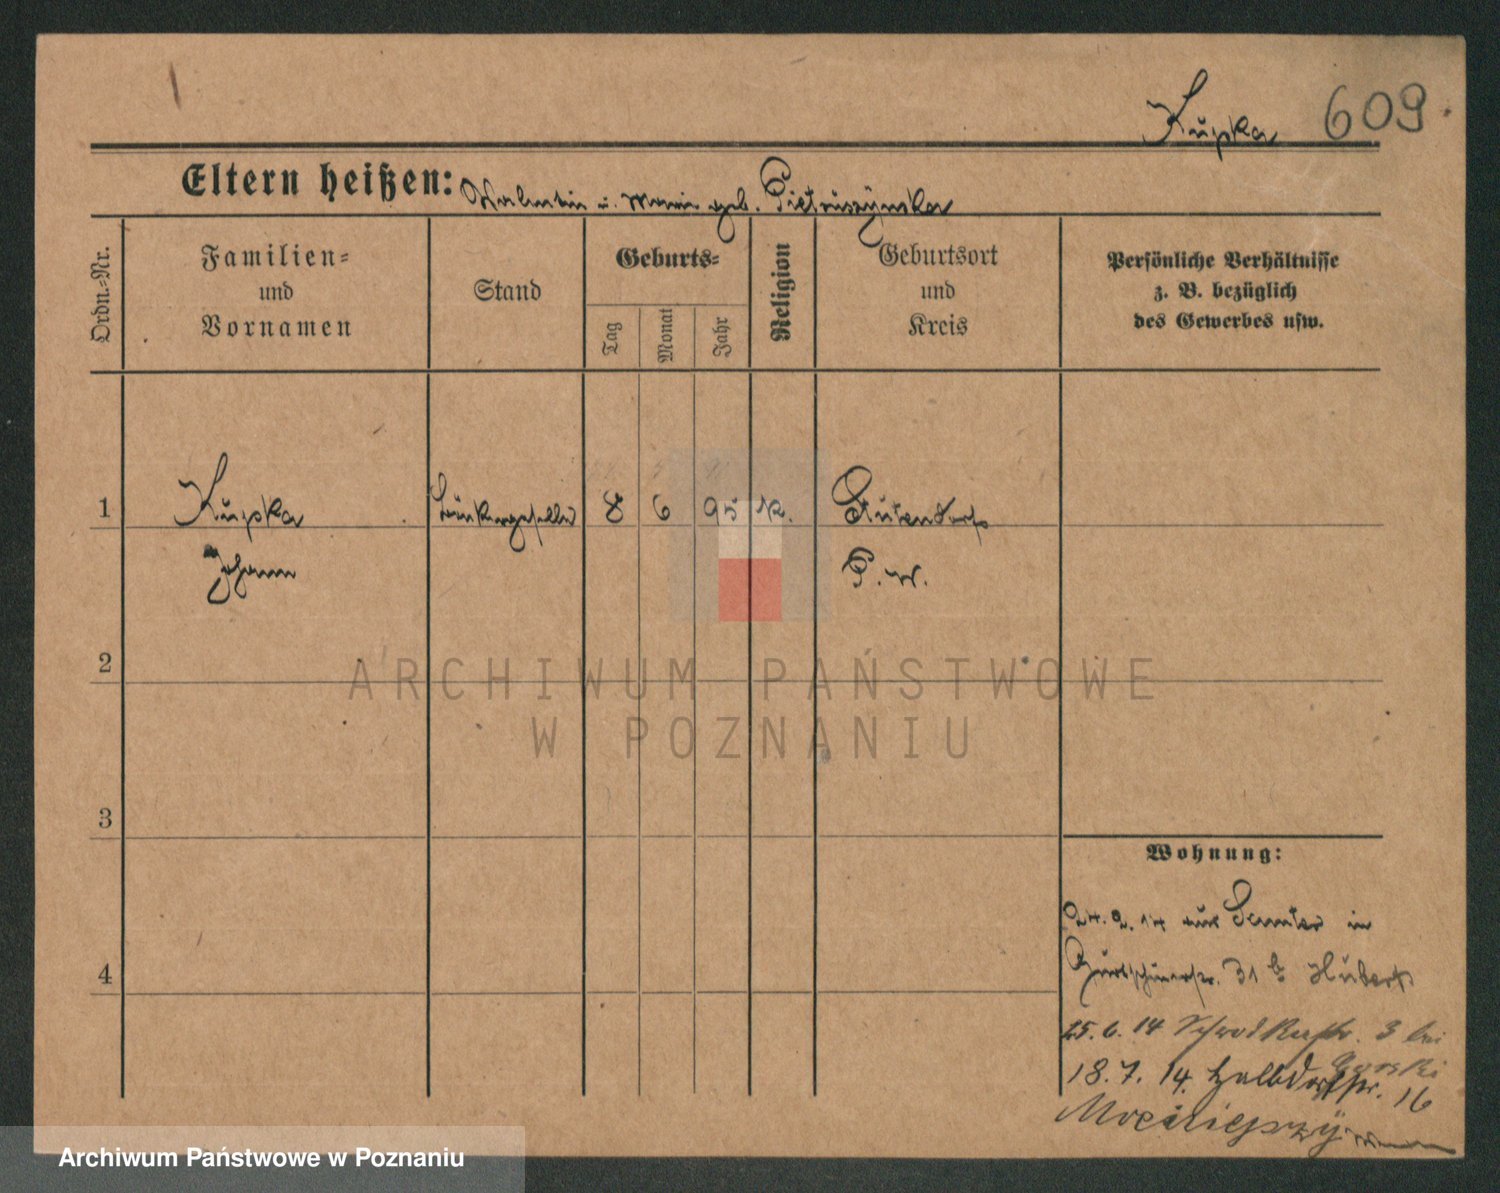 Kupka 609
Eltern heißen: Valentin u. Marie geb. Pietruszynska
Ordn.-Nr.
Familien-
und
Vornamen
Stand
Geburts-
Tag
Monat
Jahr
Religion
Geburtsort
und
Kreis
Persönliche Verhältnisse
z. B. bezüglich
des Gewerbes usw.
1 Kupka 8 6 95 K.
Johann P. W.
2
3
4
Wohnung:
24. 2. 14 aus Samter in
31 b Hubert
25. 6. 14 3 bei
Gorski
18. 7. 14. Halbdorfstr. 16
ARCHIWUM PAŃSTWOWE
W POZNANIU
Archiwum Państwowe w Poznaniu